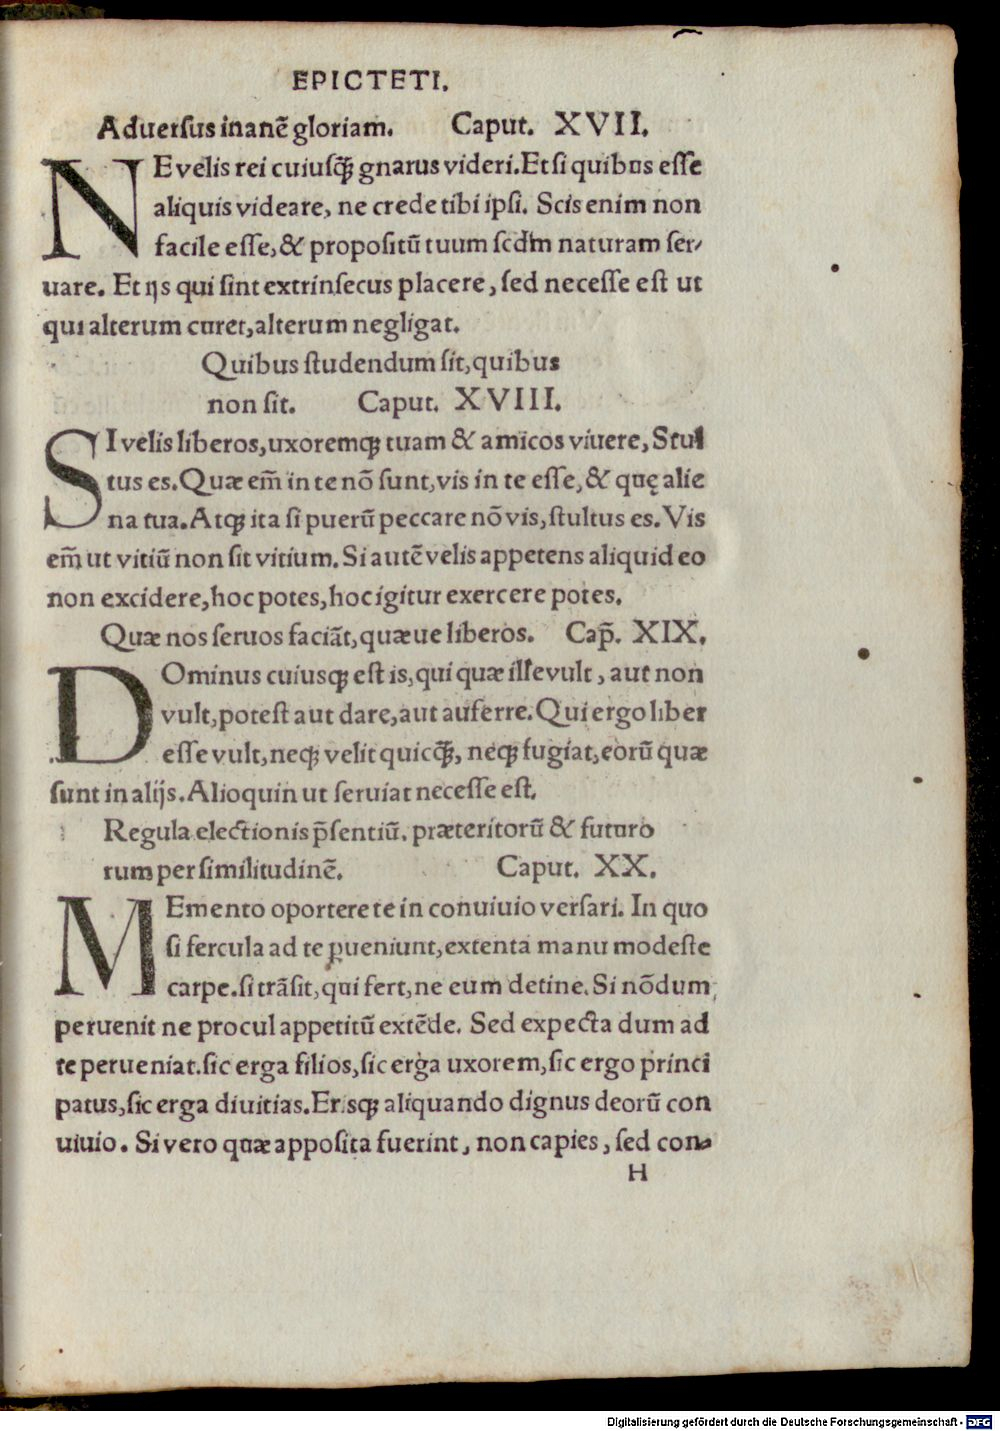 EPICTETI.
Aduerſus inanē gloriam. Caput. XVII.
NE velis rei cuiuſꝙ̃ gnarus videri. Et ſi quibus eſſe
aliquis videare, ne crede tibi ipſi. Scis enim non
facile eſſe, & propoſitū tuum ſcdm naturam ſer-
uare. Et ijs qui ſint extrinſecus placere, ſed neceſſe eſt ut
qui alterum curet, alterum negligat.
Quibus ſtudendum ſit, quibus
non ſit. Caput. XVIII.
SI velis liberos, uxoremqꝫ tuam & amicos viuere, Stul
tus es. Quæ em̄ in te nō ſunt, vis in te eſſe, & quę alie
na tua. Atqꝫ ita ſi puerū peccare nō vis, ſtultus es. Vis
em̄ ut vitiū non ſit vitium. Si autē velis appetens aliquid eo
non excidere, hoc potes, hoc igitur exercere potes.
Quæ nos ſeruos faciāt, quæue liberos. Cap̄. XIX.
DOminus cuiusqꝫ eſt is, qui quæ ille vult, aut non
vult, poteſt aut dare, aut auferre. Qui ergo liber
eſſe vult, neqꝫ velit quicꝙ̃, neqꝫ fugiat, eorū quæ
ſunt in alijs. Alioquin ut ſeruiat neceſſe eſt.
Regula electionis p̄ſentiū. præteritorū & futuro
rum per ſimilitudinē. Caput. XX.
MEmento oportere te in conuiuio verſari. In quo
ſi fercula ad te ꝑueniunt, extenta manu modeſte
carpe. ſi trāſit, qui fert, ne eum detine. Si nōdum
peruenit ne procul appetitū extēde. Sed expecta dum ad
te perueniat. ſic erga filios, ſic erga uxorem, ſic ergo princi
patus, ſic erga diuitias. Eriſqꝫ aliquando dignus deorū con
uiuio. Si vero quæ appoſita fuerint, non capies, ſed con-
H
Digitalisierung gefördert durch die Deutsche Forschungsgemeinschaft - DFG